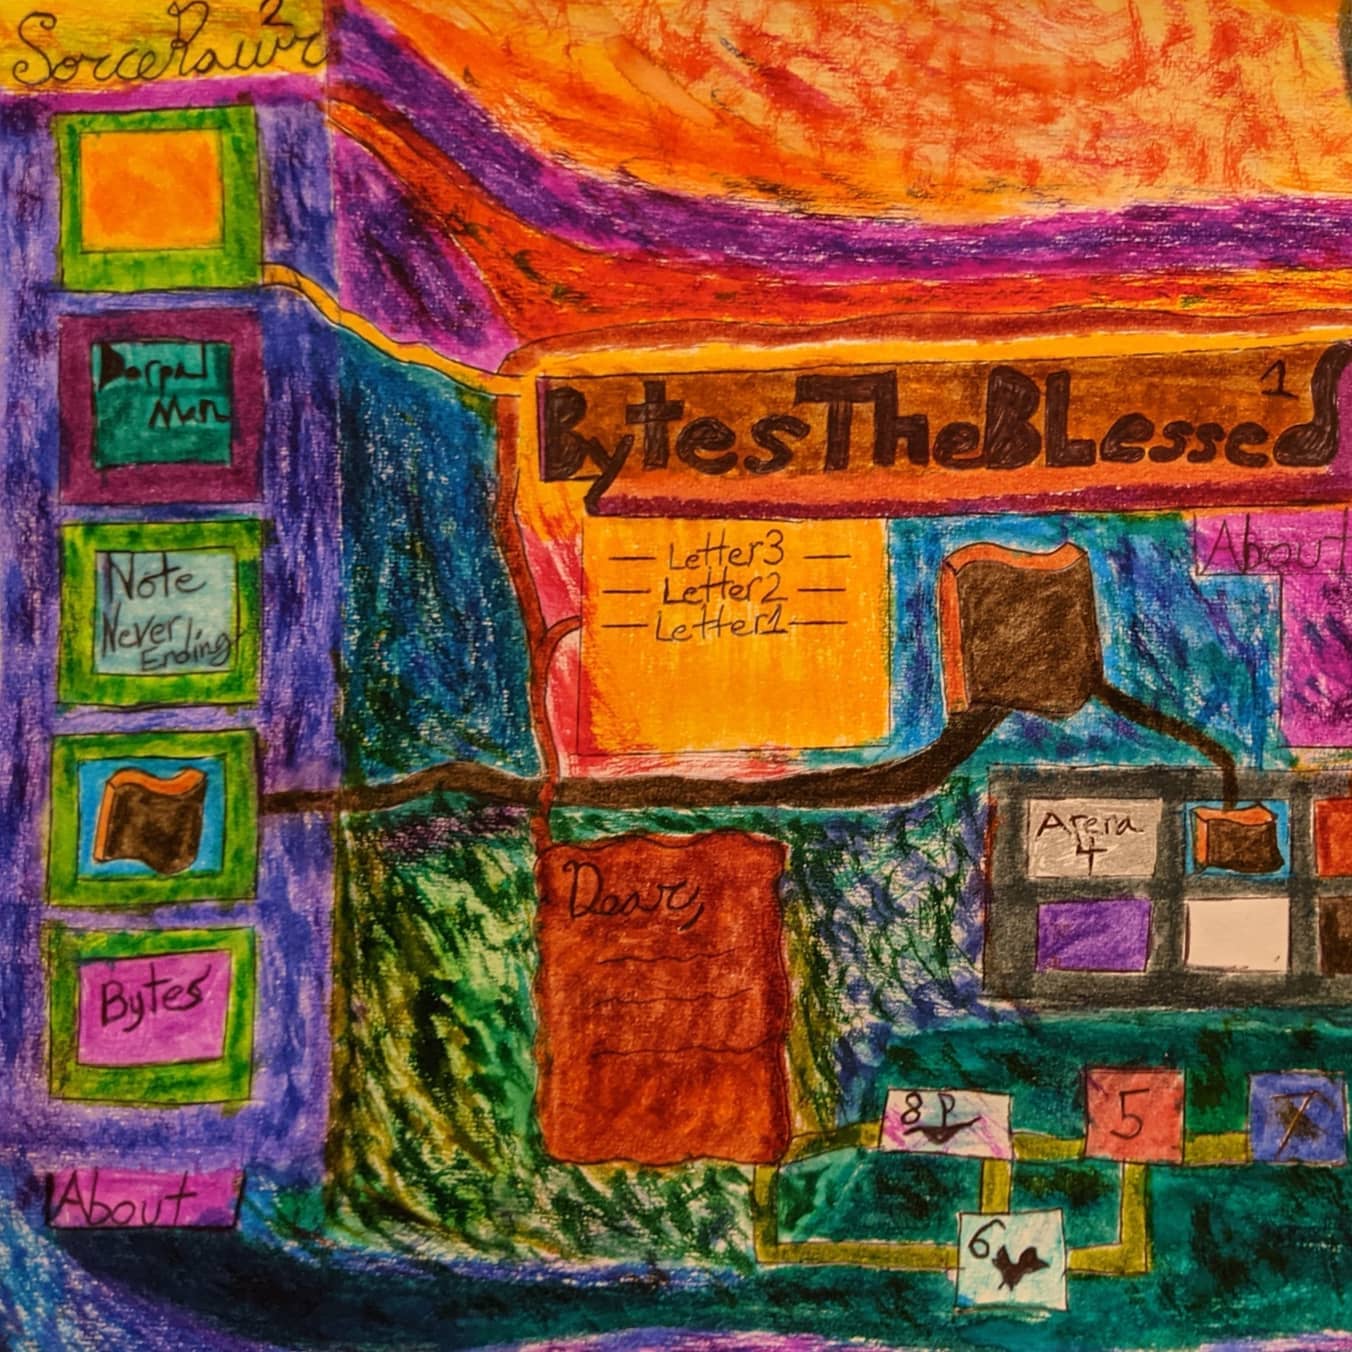 SorceRawr 2
Dorpal
Man
Note
Never
Ending
Bytes
About
BytesTheBLessed 1
— Letter3 —
— Letter2 —
— Letter1 —
About
Arena
4
Dear,
8
5
7
6